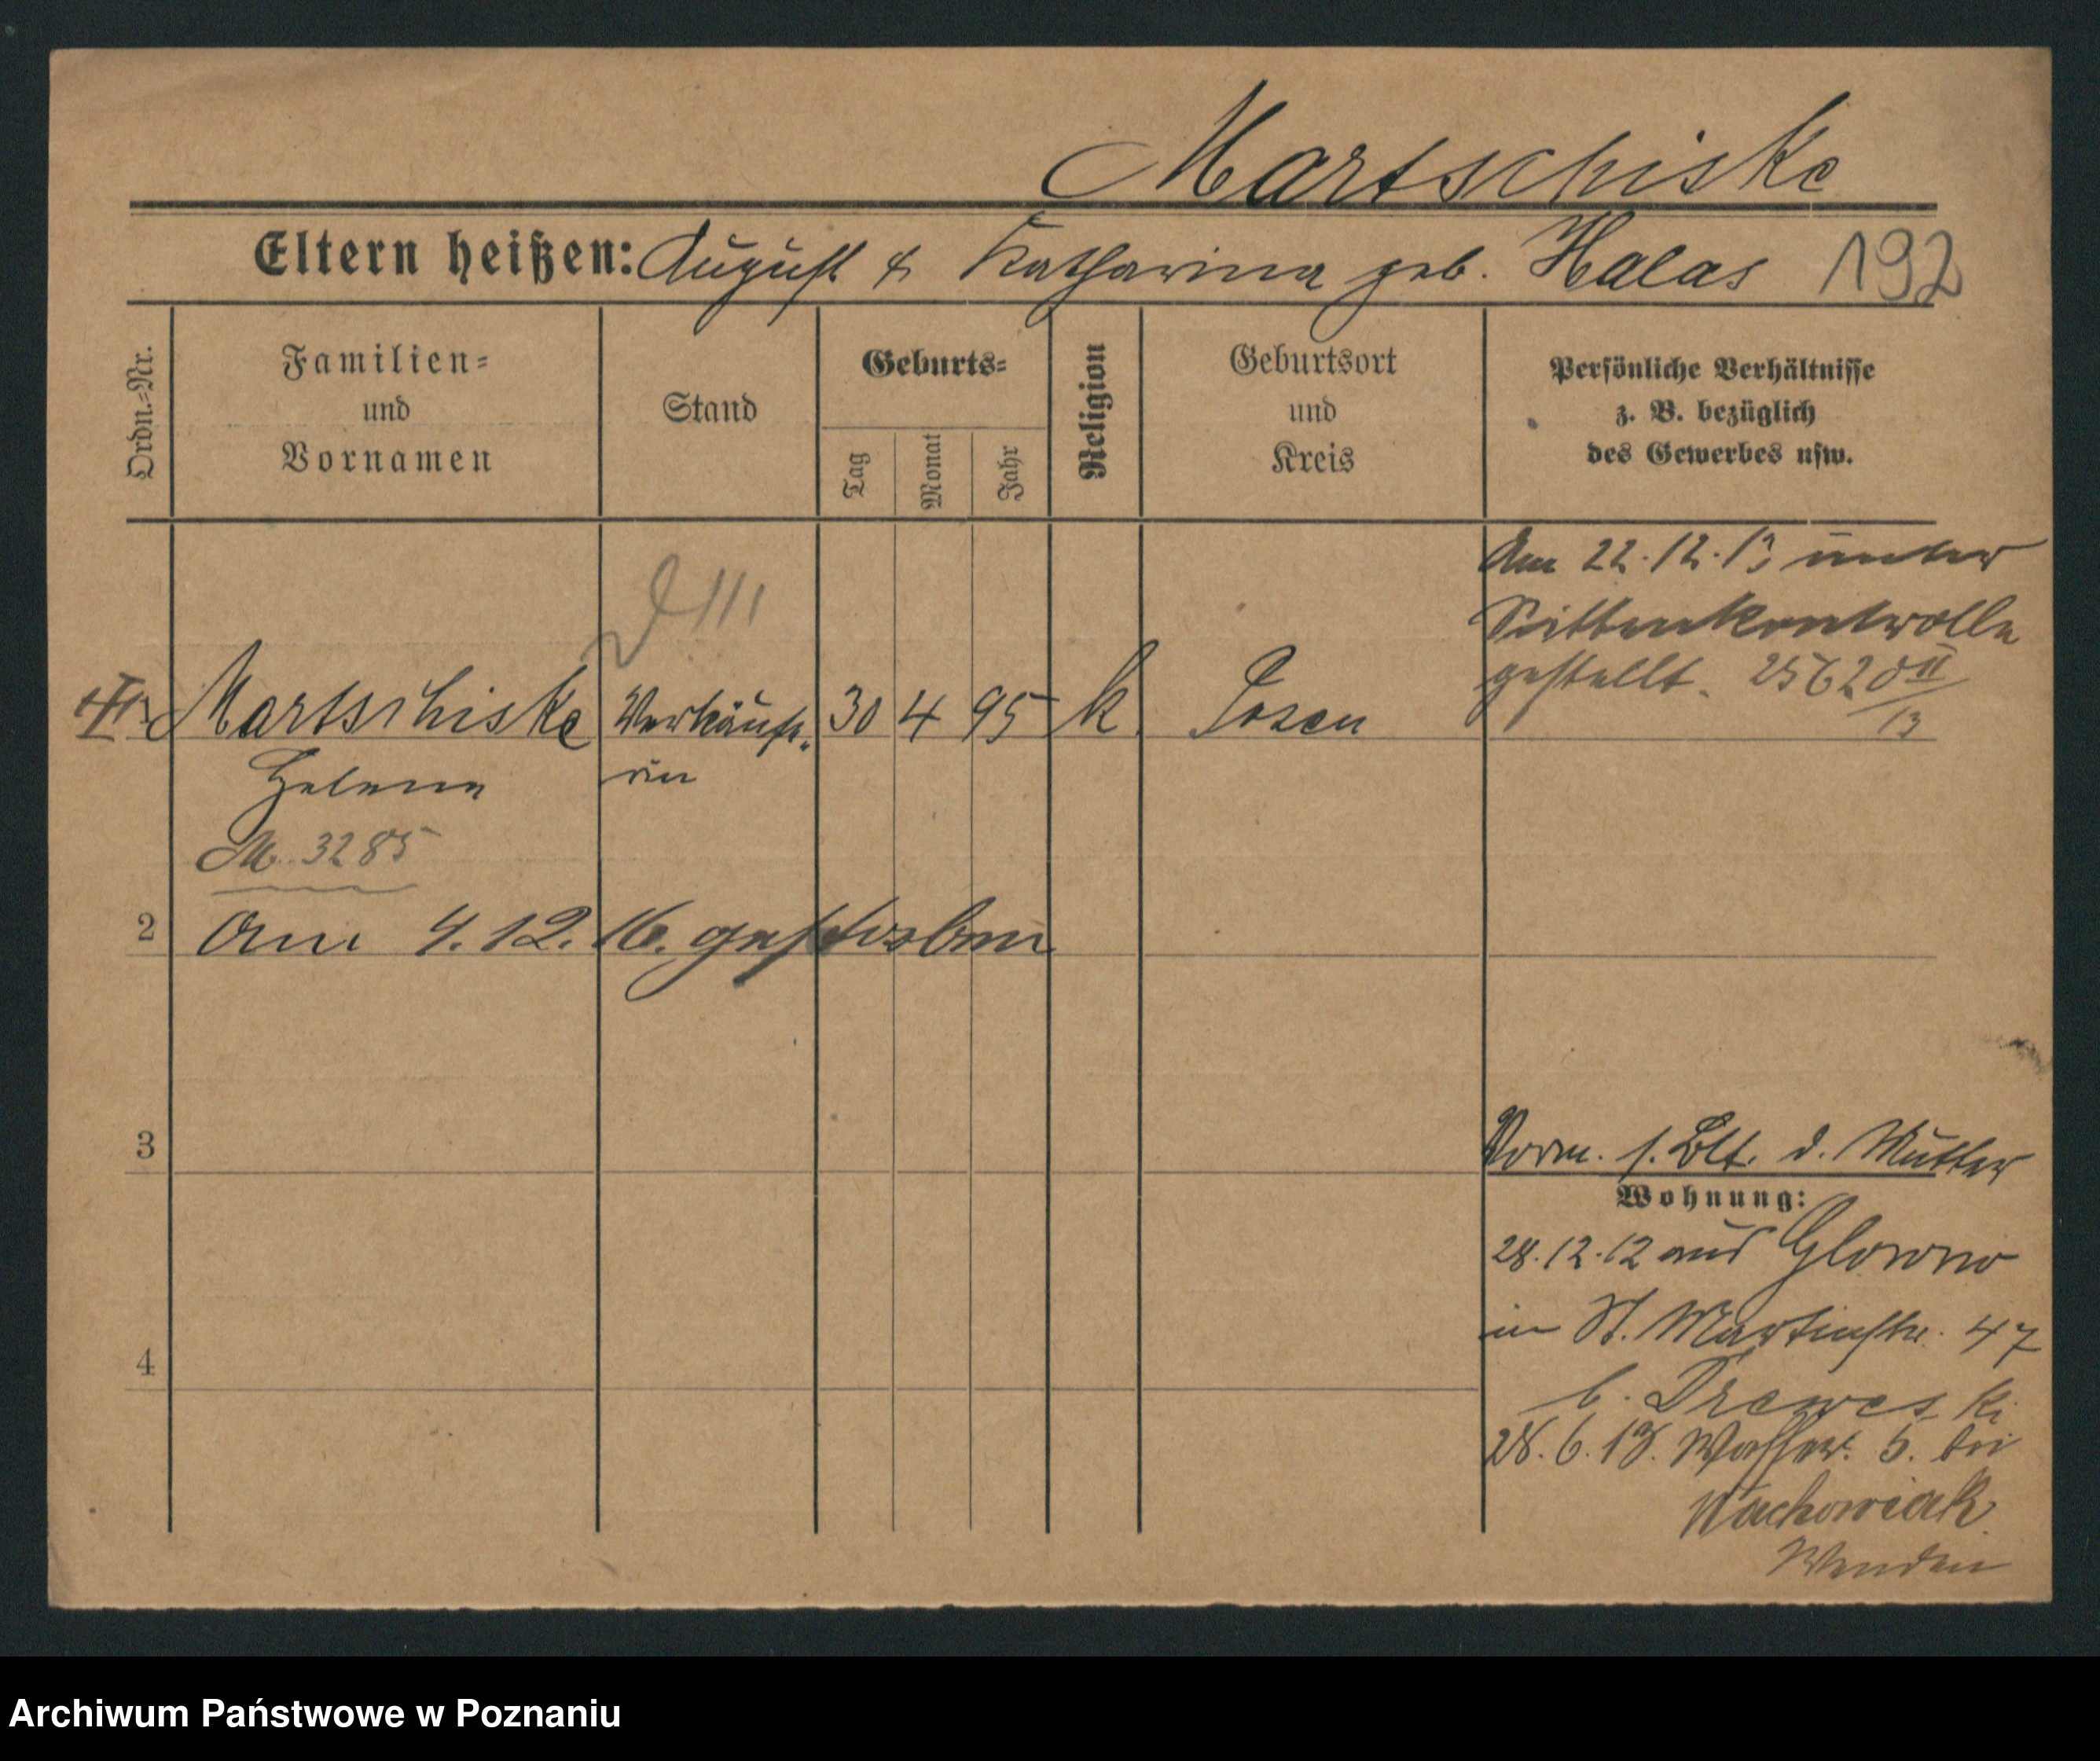 Martschiske
Eltern heißen: August & Katharina geb. Halas 192
Ordn.-Nr.
Familien-
und
Vornamen
Stand
Geburts-
Tag
Monat
Jahr
Religion
Geburtsort
und
Kreis
Persönliche Verhältnisse
z. B. bezüglich
des Gewerbes usw.
Am 22.12.13 unter
Sittenkontrolle
gestellt. 2562
13
Martschiske Verkäufe- 30 4 95 k Posen
Helene rin
M. 3285
2 Am 4.12.16. gestorben
3
Vorm. s. Blt. d. Mutter
Wohnung:
28.12.12 aus Glowno
in St. Martinstr. 47
b. Drewes ki
28.6.13. Wasserst. 5. bei
Wachowiak
4